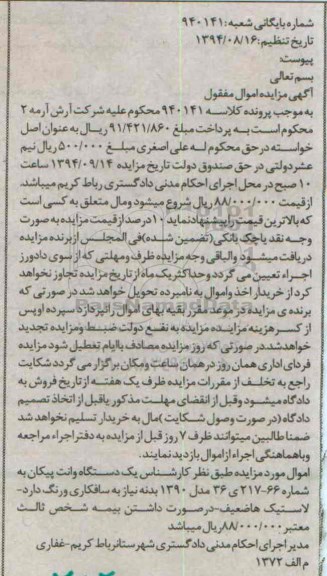 شماره بایگانی شعبه: ۹۴۰۱۴۱
تاریخ تنظیم: ۱۳۹۴/۰۸/۱۶
پیوست:
بسم تعالی
آگهی مزایده اموال مفقول
به موجب پرونده کلاسه ۹۴۰۱۴۱ محکوم علیه شرکت آرش آرمه ۲
محکوم است به پرداخت مبلغ ۹۱/۴۲۱/۸۶۰ ریال به عنوان اصل
خواسته در حق محکوم له علی اصغری مبلغ ۵۰۰/۰۰۰ ریال نیم
عشر دولتی در حق صندوق دولت تاریخ مزایده ۱۳۹۴/۰۹/۱۴ ساعت
۱۰ صبح در محل اجرای احکام مدنی دادگستری رباط کریم میباشد.
از قیمت ۸۸/۰۰۰/۰۰۰ ریال شروع میشود ومال متعلق به کسی است
که بالاترین قیمت را پیشنهاد نماید ۱۰ درصد از قیمت مزایده به صورت
وجه نقد یا چک بانکی (تضمین شده) فی المجلس از برنده مزایده
دریافت میشود والباقی وجه مزایده ظرف ومهلتی که از سوی دادورز
اجراء تعیین می گردد وحداکثر یک ماه از تاریخ مزایده تجاوز نخواهد
کرد از خریدار اخذ واموال به نامبرده تحویل خواهد شد در صورتی که
برنده ی مزایده در موعد مقرر بقیه بهای اموال را نپردازد سپرده او پس
از کسر هزینه مزایده به نفع دولت ضبط ومزایده تجدید
خواهد شد. در صورتی که روز مزایده مصادف با ایام تعطیل شود مزایده
فردای اداری همان روز در همان ساعت ومکان برگزار می گردد شکایت
راجع به تخلف از مقررات مزایده ظرف یک هفته از تاریخ فروش به
دادگاه میشود وقبل از انقضای مهلت مذکور یا قبل از اتخاذ تصمیم
دادگاه (در صورت وصول شکایت) مال به خریدار تسلیم نخواهد شد
ضمنا طالبین میتوانند ظرف ۷ روز قبل از مزایده به دفتر اجراء مراجعه
وباهماهنگی اجراء از اموال بازدید نمایند.
اموال مورد مزایده طبق نظر کارشناس یک دستگاه وانت پیکان به
شماره ۶۶-۲۱۷ ی ۳۶ مدل ۱۳۹۰ بدنه نیاز به سافکاری ورنگ دارد-
لاستیک هاضعیف-در صورت داشتن بیمه شخص ثالث
معتبر ۸۸/۰۰۰/۰۰۰ ریال میباشد
مدیر اجرای احکام مدنی دادگستری شهرستان رباط کریم-غفاری
م الف ۱۳۷۲